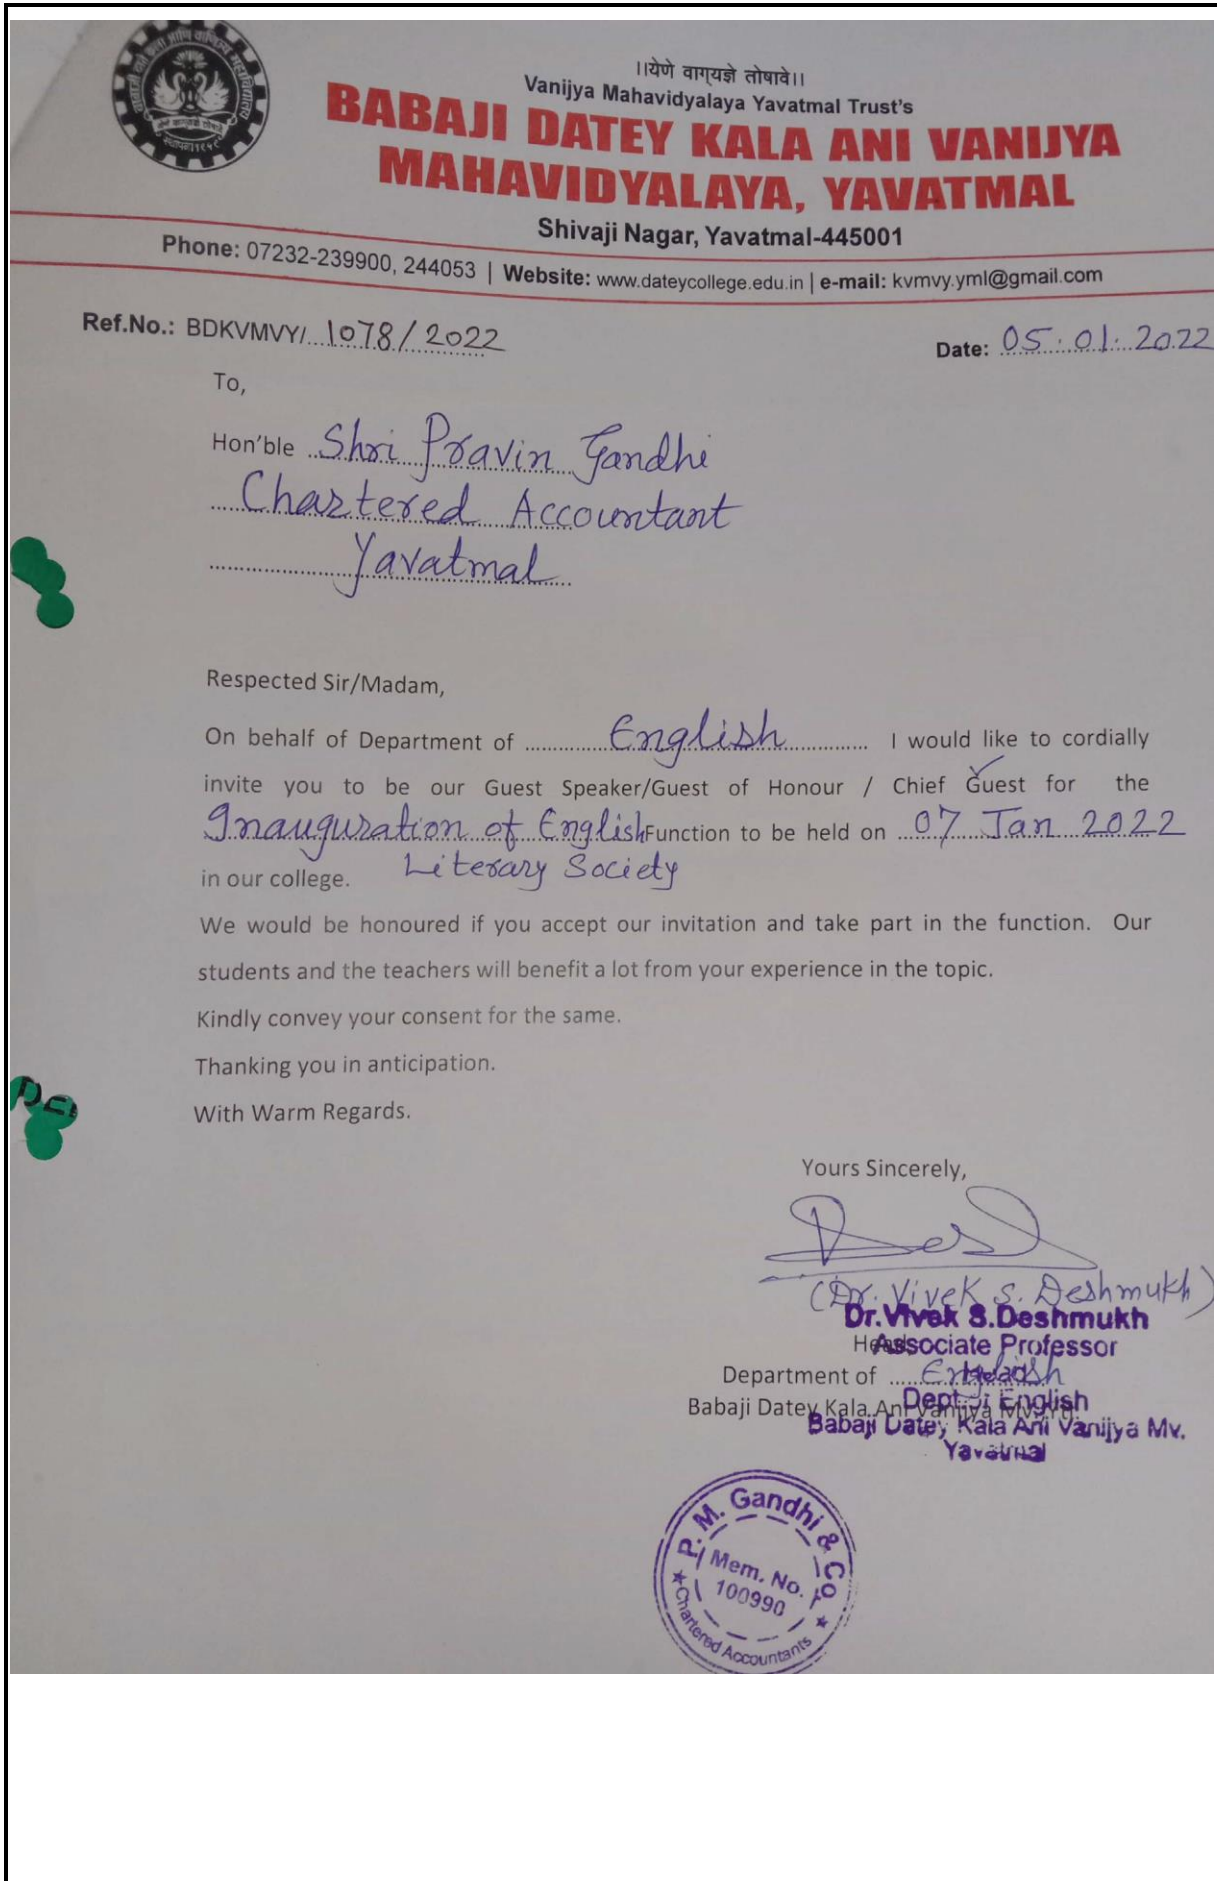 ।।येणे वाग्‌यज्ञे तोषावे।।
Vanijya Mahavidyalaya Yavatmal Trust's
BABAJI DATEY KALA ANI VANIJYA
MAHAVIDYALAYA, YAVATMAL
Shivaji Nagar, Yavatmal-445001
Phone: 07232-239900, 244053 | Website: www.dateycollege.edu.in | e-mail: kvmvy.yml@gmail.com
Ref.No.: BDKVMVY/ 1078/2022
Date: 05.01.2022
To,
Hon'ble Shri Pravin Gandhi
Chartered Accountant
Yavatmal
Respected Sir/Madam,
On behalf of Department of English I would like to cordially
invite you to be our Guest Speaker/Guest of Honour / Chief Guest for the
Inauguration of English Function to be held on 07 Jan 2022
in our college. Literary Society
We would be honoured if you accept our invitation and take part in the function. Our
students and the teachers will benefit a lot from your experience in the topic.
Kindly convey your consent for the same.
Thanking you in anticipation.
With Warm Regards.
Yours Sincerely,
(Dr. Vivek S. Deshmukh)
Dr.Vivek S.Deshmukh
Associate Professor
Head
Department of English
Dept of English
Babaji Datey Kala Ani Vanijya
Babaji Datey Kala Ani Vanijya Mv.
Yavatmal
P. M. Gandhi & Co.
Mem. No.
100990
Chartered Accountants